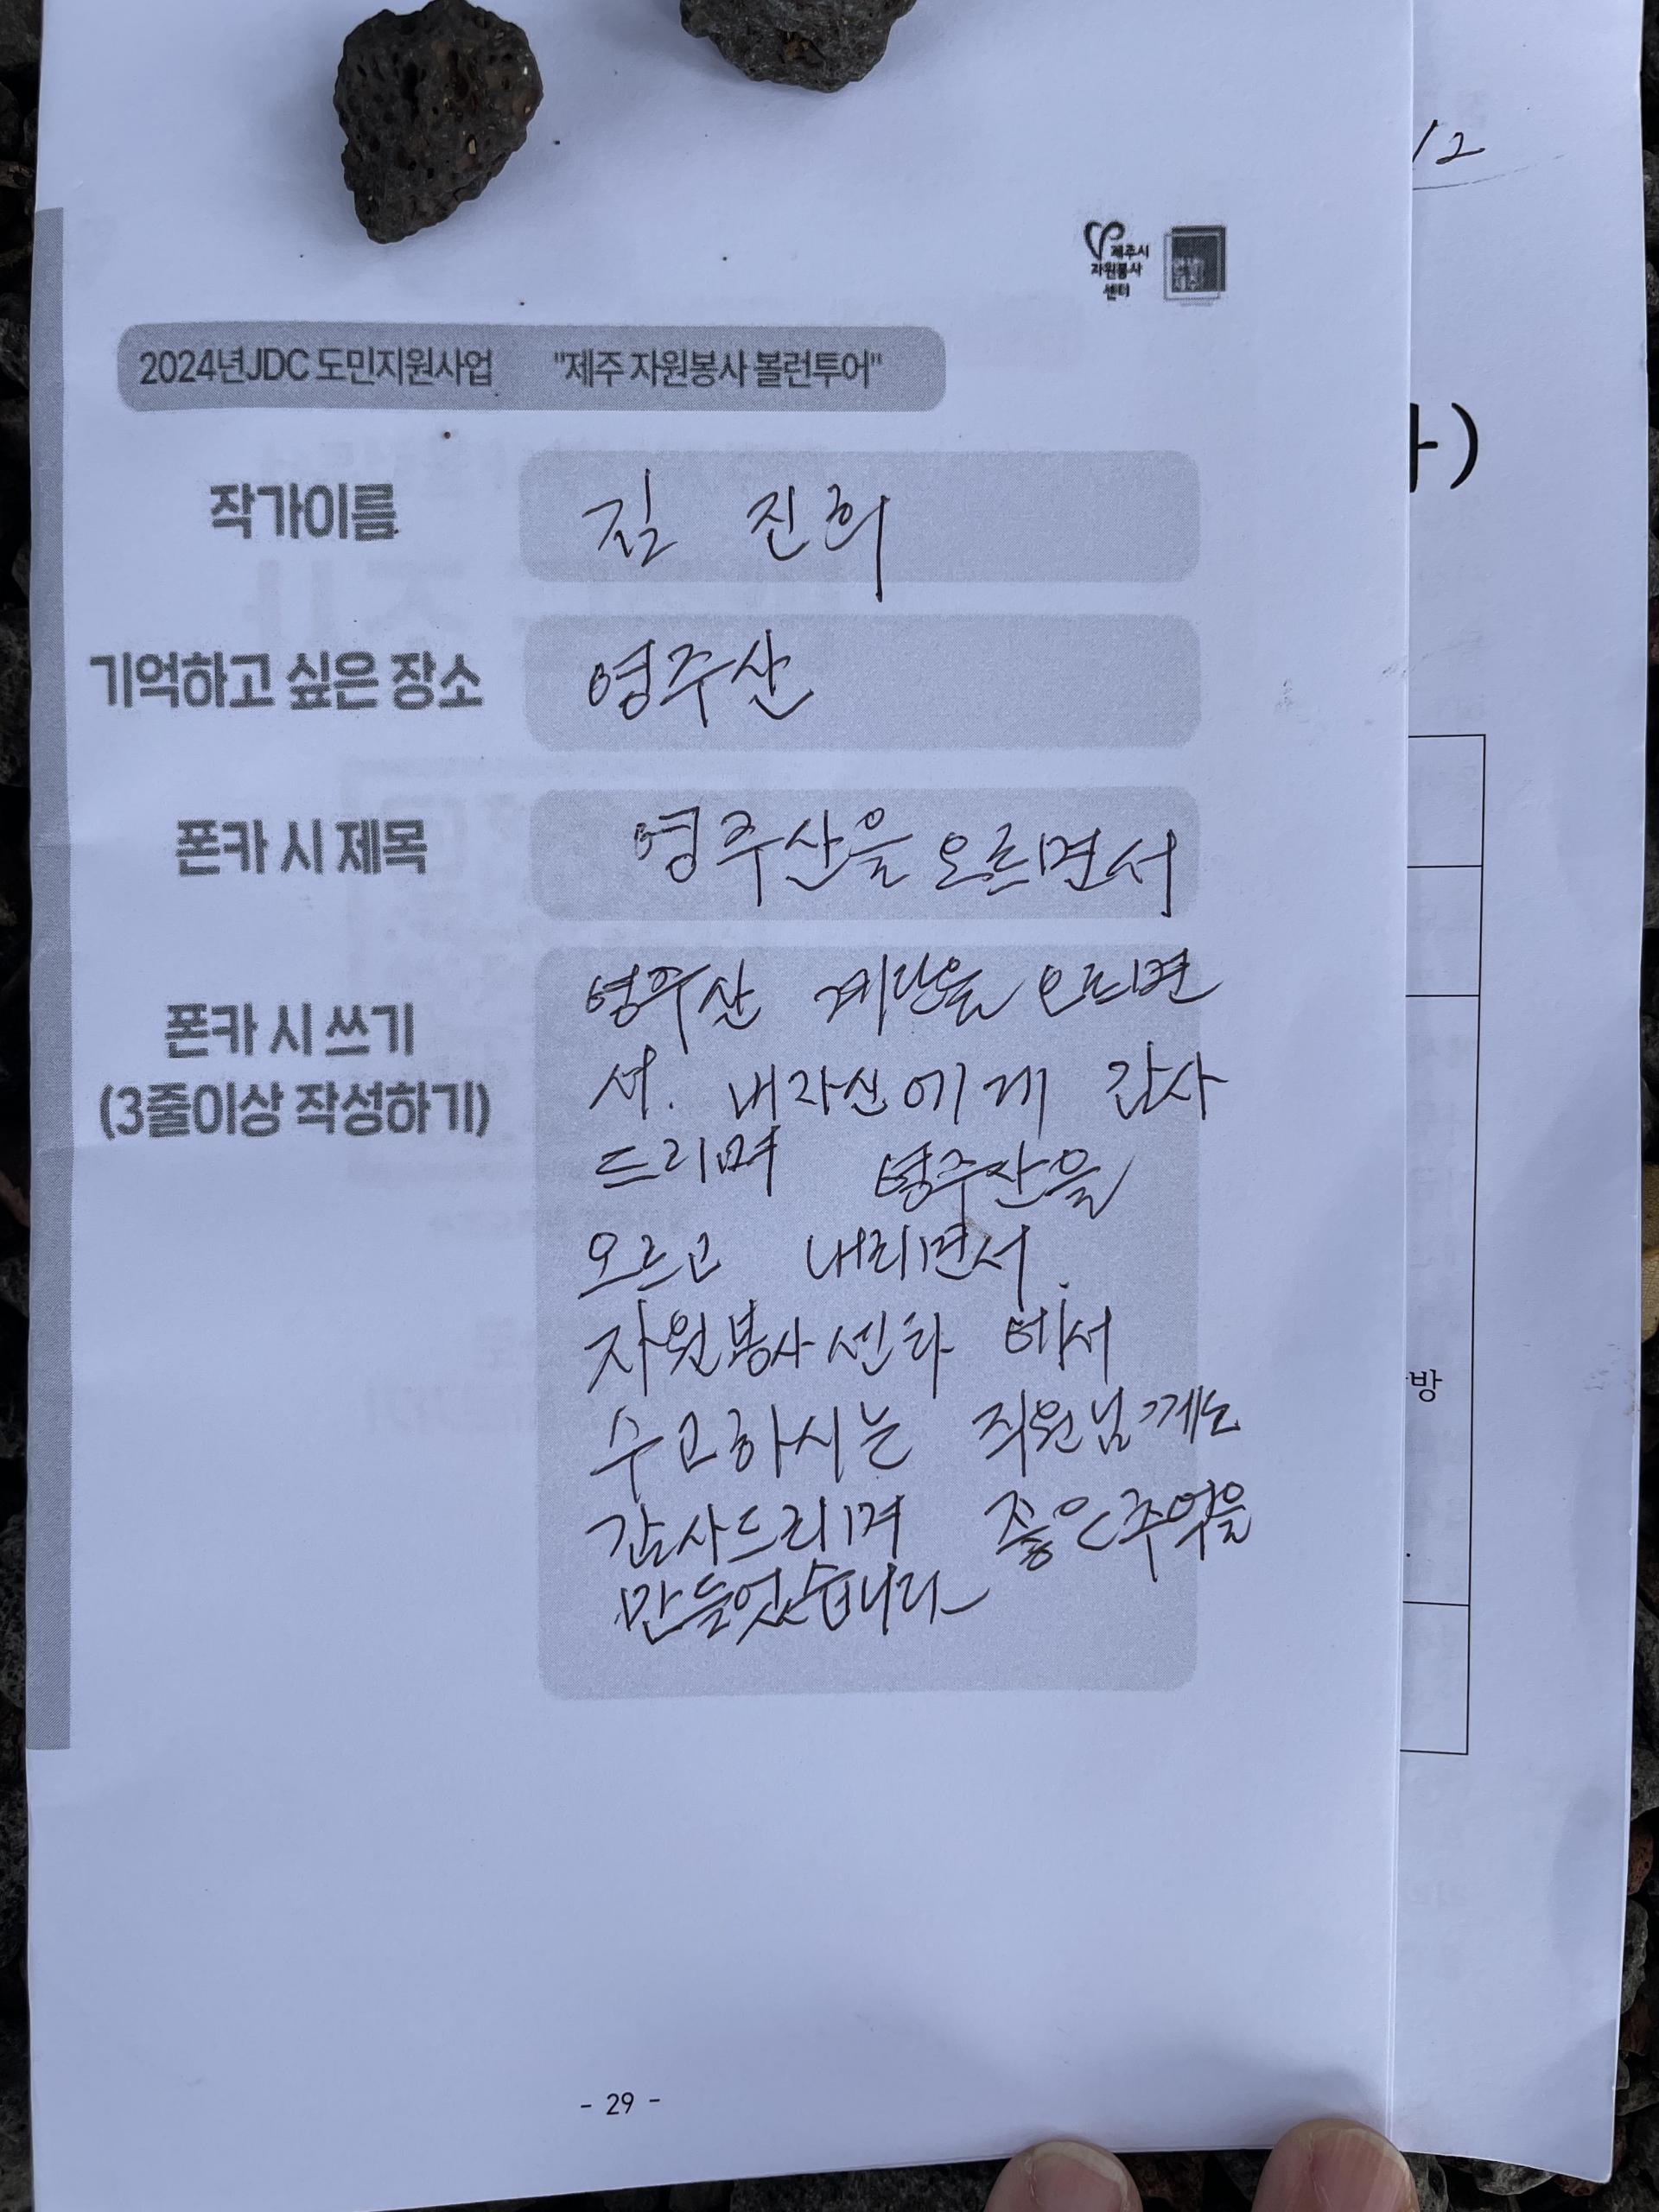 12
제주시
자원봉사
센터
2024년JDC 도민지원사업 "제주 자원봉사 볼런투어"
작가이름 김 진희
기억하고 싶은 장소 영주산
폰카 시 제목 영주산을 오르면서
폰카 시 쓰기
(3줄이상 작성하기)
영주산 계단을 오르면
서. 내자신에게 감사
드리며 영주산을
오르고 내리면서.
자원봉사센타 에서
수고하시는 직원님께도
감사드리며 좋은추억을
만들었습니다
방
- 29 -